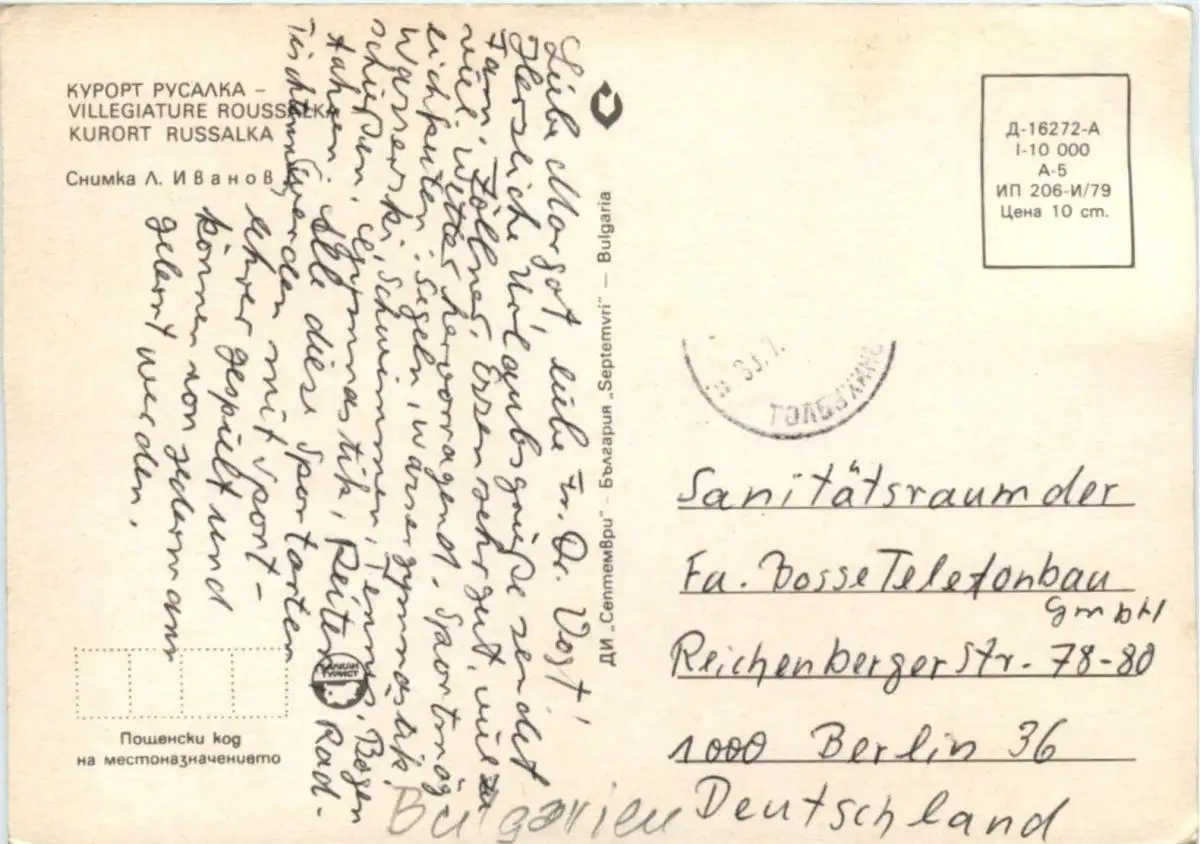 КУРОРТ РУСАЛКА –
VILLEGIATURE ROUSSALKA
KURORT RUSSALKA
Снимка Л. Иванов
Liebe Margot, liebe Fr. Dr. Vogt!
Herzliche Urlaubsgrüße sendet
Fam. Zöllner. Essen sehr gut, viel zu
viel. Wetter hervorragend. Sportmög-
lichkeiten: Segeln, Wassergymnastik,
Wasserski, Schwimmen, Tennis, Bogen
schießen, Gymnastik, Reiten, Rad-
fahren. Alle diese Sportarten
Tischtennis werden mit Sport-
lehrer gespielt und
können von jedermann
gelernt werden.
ДИ „Септември" – България „Septemvri" – Bulgaria
Д-16272-А
I-10 000
А-5
ИП 206-И/79
Цена 10 ст.
ТОЛБУХИН
Sanitätsraum der
Fa. Bosse Telefonbau
GmbH
Reichenberger Str. 78-80
1000 Berlin 36
Deutschland
Bulgarien
БАЛКАН
ТУРИСТ
Пощенски код
на местоназначението